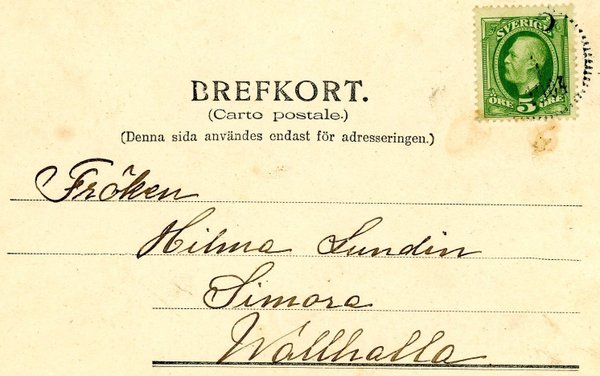 SVERIGE
ÖRE 5 ÖRE
BREFKORT.
(Carto postale.)
(Denna sida användes endast för adresseringen.)
Fröken
Hilma Lundin
Simora
Wallhalla